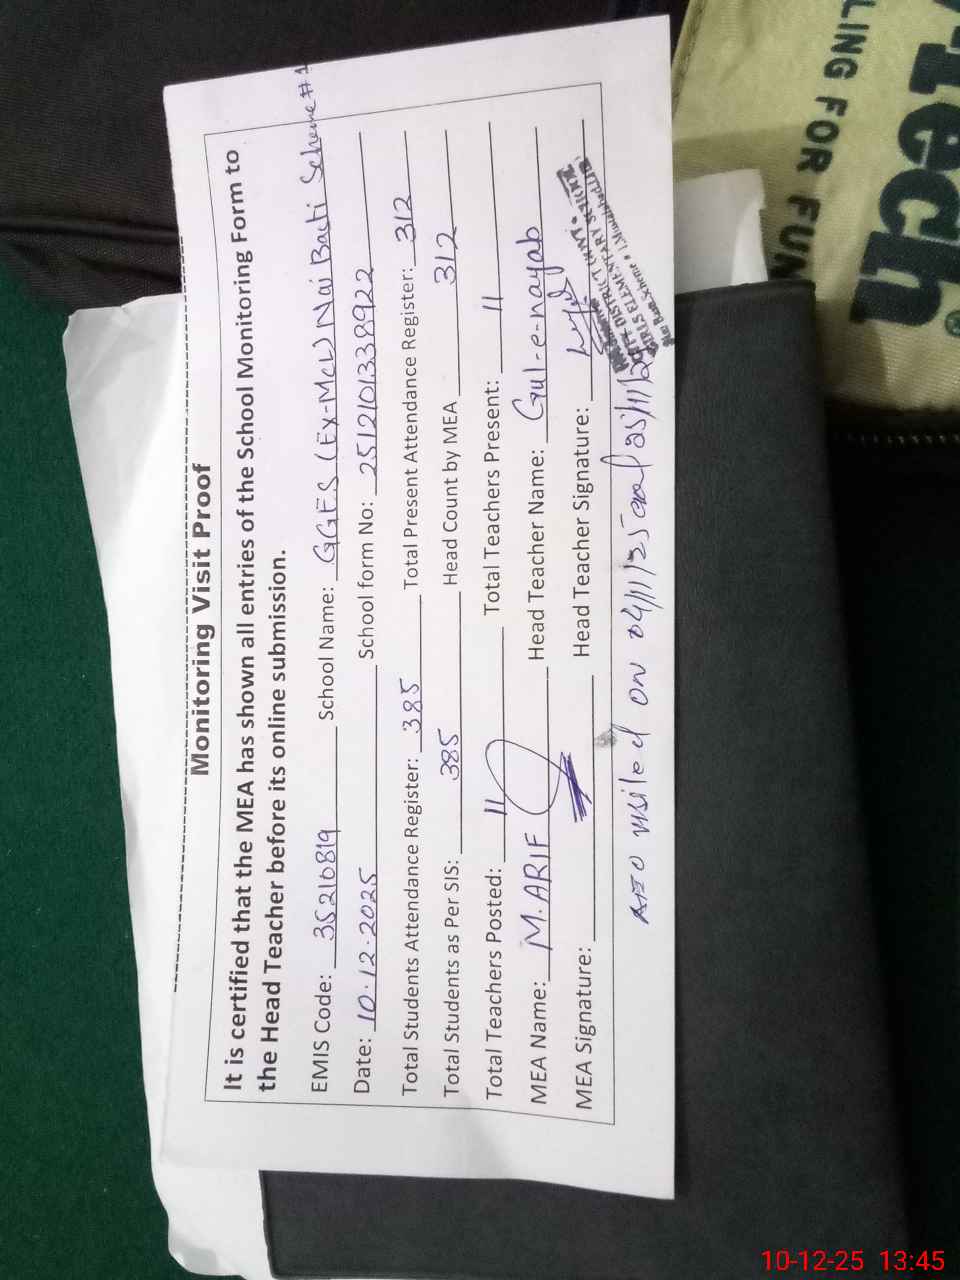 Monitoring Visit Proof
It is certified that the MEA has shown all entries of the School Monitoring Form to
the Head Teacher before its online submission.
EMIS Code: 35210819 School Name: GGES (Ex-MCL) Nai Basti Scheme #1
Date: 10.12.2025 School form No: 2512101338922
Total Students Attendance Register: 385 Total Present Attendance Register: 312
Total Students as Per SIS: 385 Head Count by MEA 312
Total Teachers Posted: 11 Total Teachers Present: 11
MEA Name: M. ARIF Head Teacher Name: Gul-e-nayab
MEA Signature: Head Teacher Signature:
DISTRICT GOVT. SCHOOL
GIRLS ELEMENTARY
Nai Basti Scheme
visited on 04/11/25 and 25/11/25
Tech
LING FOR FUN
10-12-25 13:45